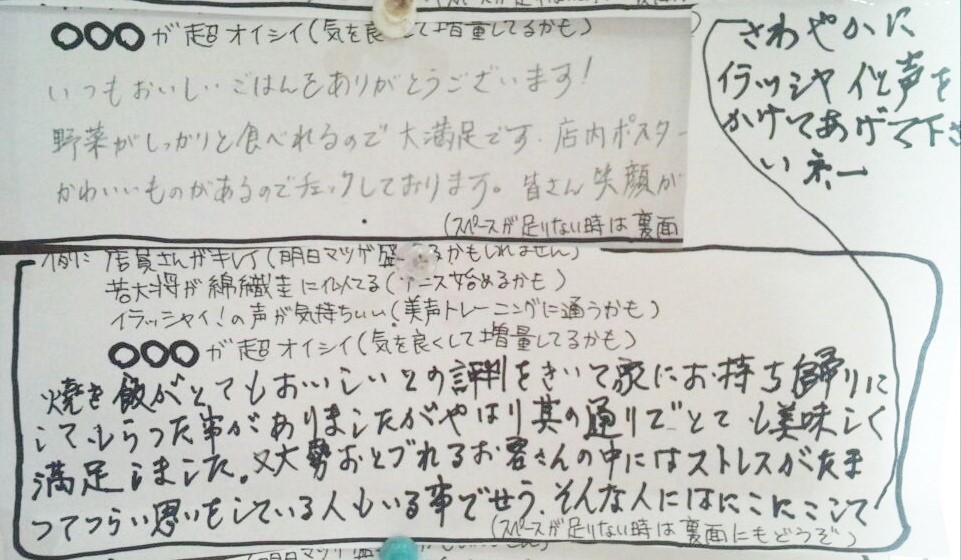 ○○○が超オイシイ(気を良 て増量してるかも)
いつもおいしいごはんをありがとうございます!
野菜がしっかりと食べれるので大満足です.店内ポスター
かわいいものがあるのでチェックしております。皆さん笑顔が
(スペースが足りない時は裏面
例に 店員さんがキレイ(明日マツゲ るかもしれません)
若大将が綿織圭に似てる( ニス始めるかも)
イラッシャイ!の声が気持ちいい(美声トレーニングに通うかも)
○○○が超オイシイ(気を良くして増量してるかも)
焼き飯がとてもおいしいとの評判をきいて家にお持ち帰りに
してもらった事がありましたがやはり其の通りでとても美味しく
満足しました。又大勢おとづれるお客さんの中にはストレスがたま
ってつらい思いをしている人もいる事でせう.そんな人にはにこにこして
(スペースが足りない時は裏面にもどうぞ)
さわやかに
イラッシャイと声を
かけてあげて下さ
いネー